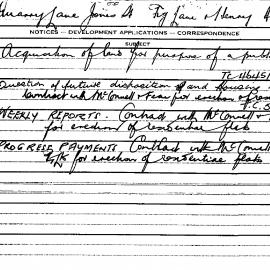 Quarry Lane Jones St Fig Lane & Henry
NOTICES — DEVELOPMENT APPLICATIONS — CORRESPONDENCE
SUBJECT
Acquisition of land for purpose of a public
Question of future disposition of and housing
Contract with McConnell & Fear for erection of
WEEKLY REPORTS. Contract with McConnell &
for erection of residential flats
PROGRESS PAYMENTS. Contract with McConnell
for erection of residential flats